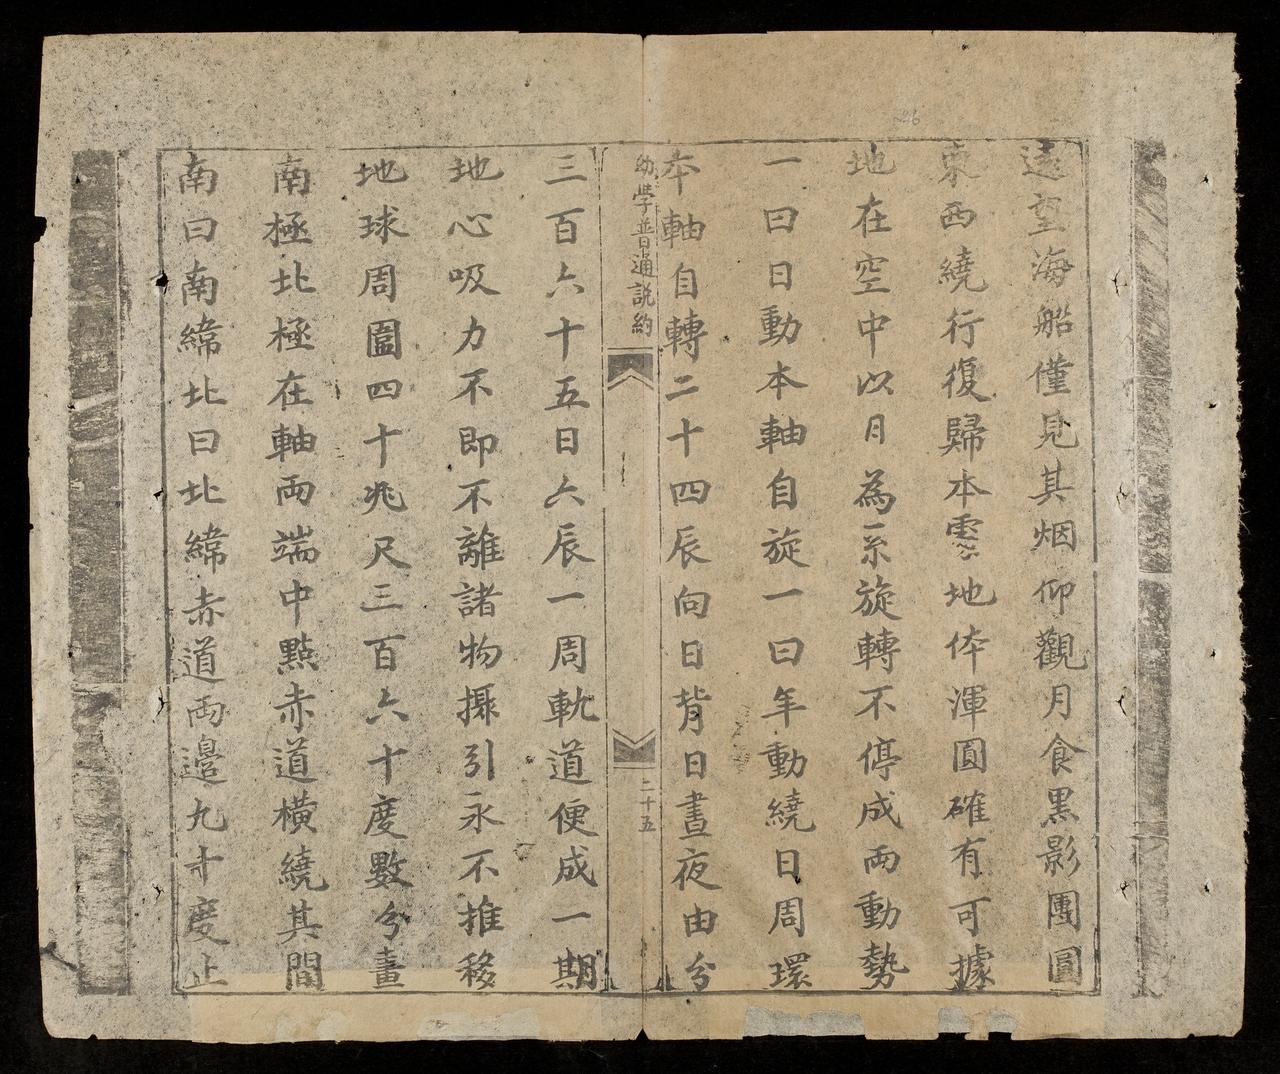 遠望海船僅見其烟仰觀月食黑影團圓
東西繞行復歸本處地体渾圓確有可據
地在空中以月為系旋轉不停成両動勢
一曰日動本軸自旋一曰年動繞日周環
本軸自轉二十四辰向日背日晝夜由分
幼學普通説約
二十五
三百六十五日六辰一周軌道便成一期
地心吸力不即不離諸物攝引永不推移
地球周圍四十兆尺三百六十度數分畫
南極北極在軸両端中點赤道橫繞其間
南曰南緯北曰北緯赤道両邊九十度止